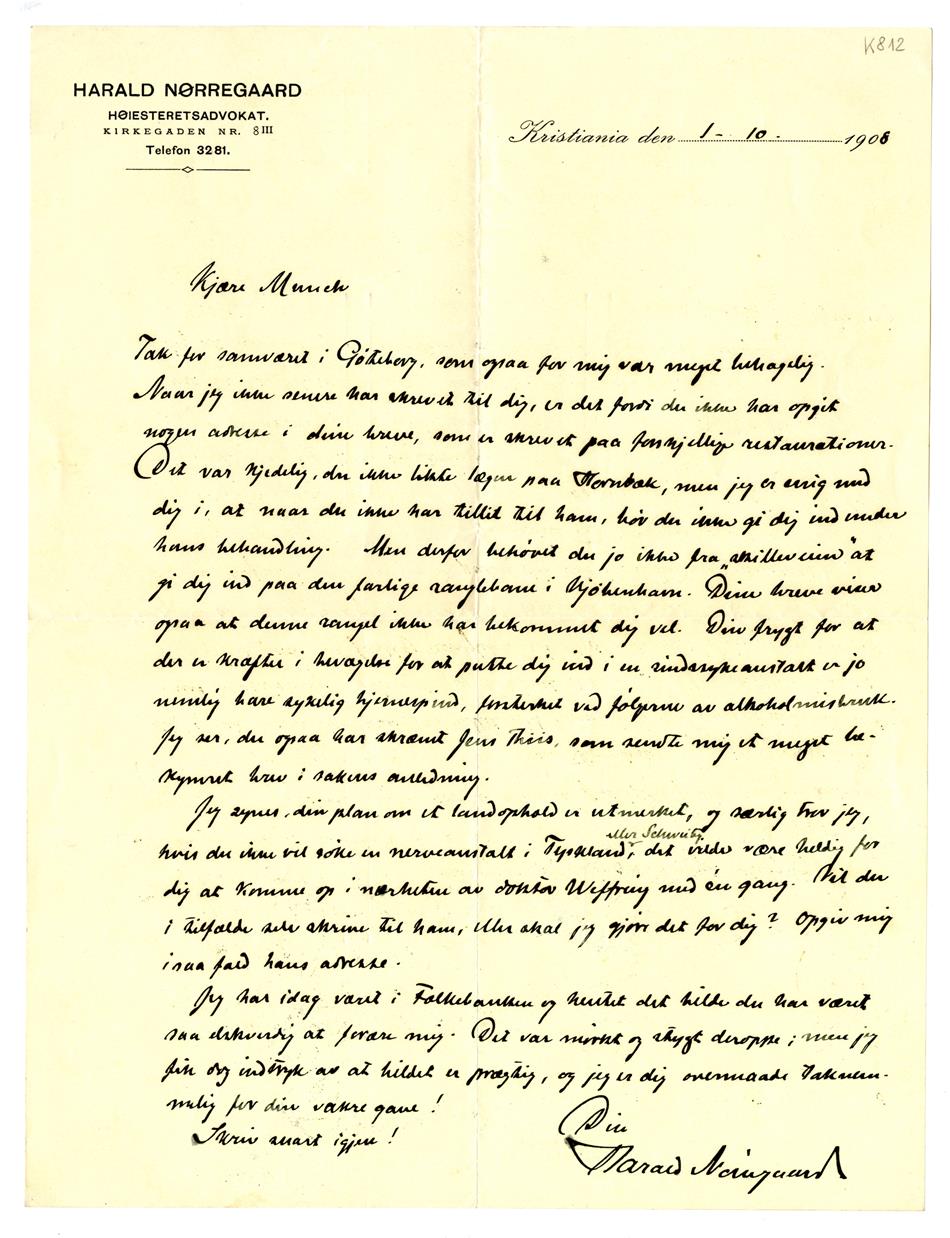 K812
HARALD NØRREGAARD
HØIESTERETSADVOKAT.
KIRKEGADEN NR. 8III
Telefon 3281.
Kristiania den 1 - 10 - 1908
Kjære Munch
Tak for samværet i Gøteborg, som ogsaa for mig var meget behagelig.
Naar jeg ikke senere har skrevet til dig, er det fordi du ikke har opgit
nogen adresse i dine breve, som er skrevet paa forskjellige restaurationer.
Det var kjedelig, du ikke likte lægen paa Hornbæk, men jeg er enig med
dig i, at naar du ikke har tillit til ham, bør du ikke gi dig ind under
hans behandling. Men derfor behøvet du jo ikke fra „skilleveien" at
gi dig ind paa den farlige ranglebane i Kjøbenhavn. Dine breve viser
ogsaa at denne rangel ikke har bekommet dig vel. Din frygt for at
der er kræfter i bevægelse for at putte dig ind i en sindssykeanstalt er jo
nemlig bare sykelig hjernespind, forsterket ved følgerne av alkoholmisbruk.
Jeg ser, du ogsaa har skræmt Jens Thiis, som sendte mig et meget be-
kymret brev i sakens anledning.
Jeg synes, din plan om et landophold er utmerket, og særlig tror jeg,
hvis du ikke vil søke en nerveanstalt i Tyskland, eller Schweitz, det vilde være heldig for
dig at komme op i nærheten av doktor Weffring med én gang. Vil du
i tilfælde selv skrive til ham, eller skal jeg gjøre det for dig? Opgiv mig
isaa fald hans adresse.
Jeg har idag været i Folkebanken og hentet det bilde du har været
saa elskverdig at forære mig. Det var mørkt og stygt deroppe; men jeg
fik dog indtryk av at bildet er prægtig, og jeg er dig overmaade taknem-
melig for din vakre gave!
Skriv snart igjen!
Din
Harald Nørregaard